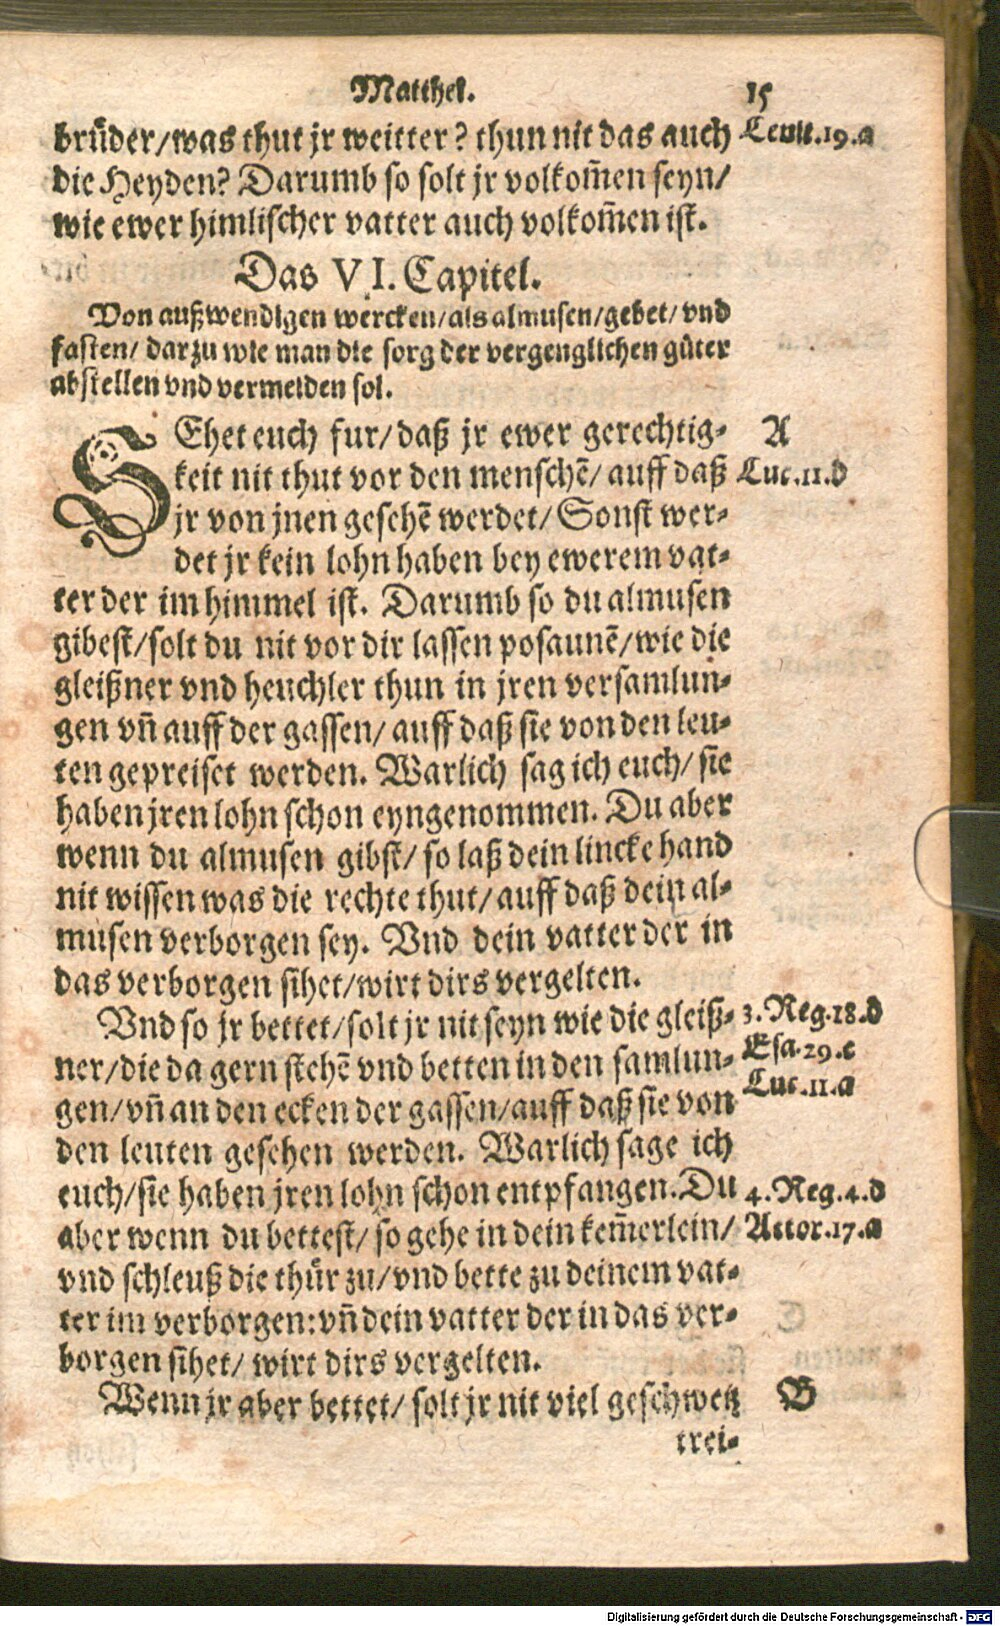 Matthei. 15
brüder/was thut jr weitter? thun nit das auch Leuit.19.a
die Heyden? Darumb so solt jr volkom̃en seyn/
wie ewer himlischer vatter auch volkom̃en ist.
Das VI. Capitel.
Von außwendigen wercken/als almusen/gebet/vnd
fasten/ darzu wie man die sorg der vergenglichen güter
abstellen vnd vermeiden sol.
SEhet euch fur/daß jr ewer gerechtig- A
keit nit thut vor den menschẽ/auff daß Luc.11.d
jr von jnen gesehẽ werdet/Sonst wer-
det jr kein lohn haben bey ewerem vat-
ter der im himmel ist. Darumb so du almusen
gibest/solt du nit vor dir lassen posaunẽ/wie die
gleißner vnd heuchler thun in jren versamlun-
gen vñ auff der gassen/auff daß sie von den leu-
ten gepreiset werden. Warlich sag ich euch/sie
haben jren lohn schon eyngenommen. Du aber
wenn du almusen gibst/so laß dein lincke hand
nit wissen was die rechte thut/auff daß dein al-
musen verborgen sey. Vnd dein vatter der in
das verborgen sihet/wirt dirs vergelten.
Vnd so jr bettet/solt jr nit seyn wie die gleiß- 3.Reg.18.d
ner/die da gern stehẽ vnd betten in den samlun- Esa.29.c
gen/vñ an den ecken der gassen/auff daß sie von Luc.11.a
den leuten gesehen werden. Warlich sage ich
euch/sie haben jren lohn schon entpfangen. Du 4.Reg.4.d
aber wenn du bettest/so gehe in dein kem̃erlein/ Actor.17.a
vnd schleuß die thür zu/vnd bette zu deinem vat-
ter im verborgen:vñ dein vatter der in das ver-
borgen sihet/wirt dirs vergelten.
Wenn jr aber bettet/solt jr nit viel geschwetz B
trei-
Digitalisierung gefördert durch die Deutsche Forschungsgemeinschaft - DFG